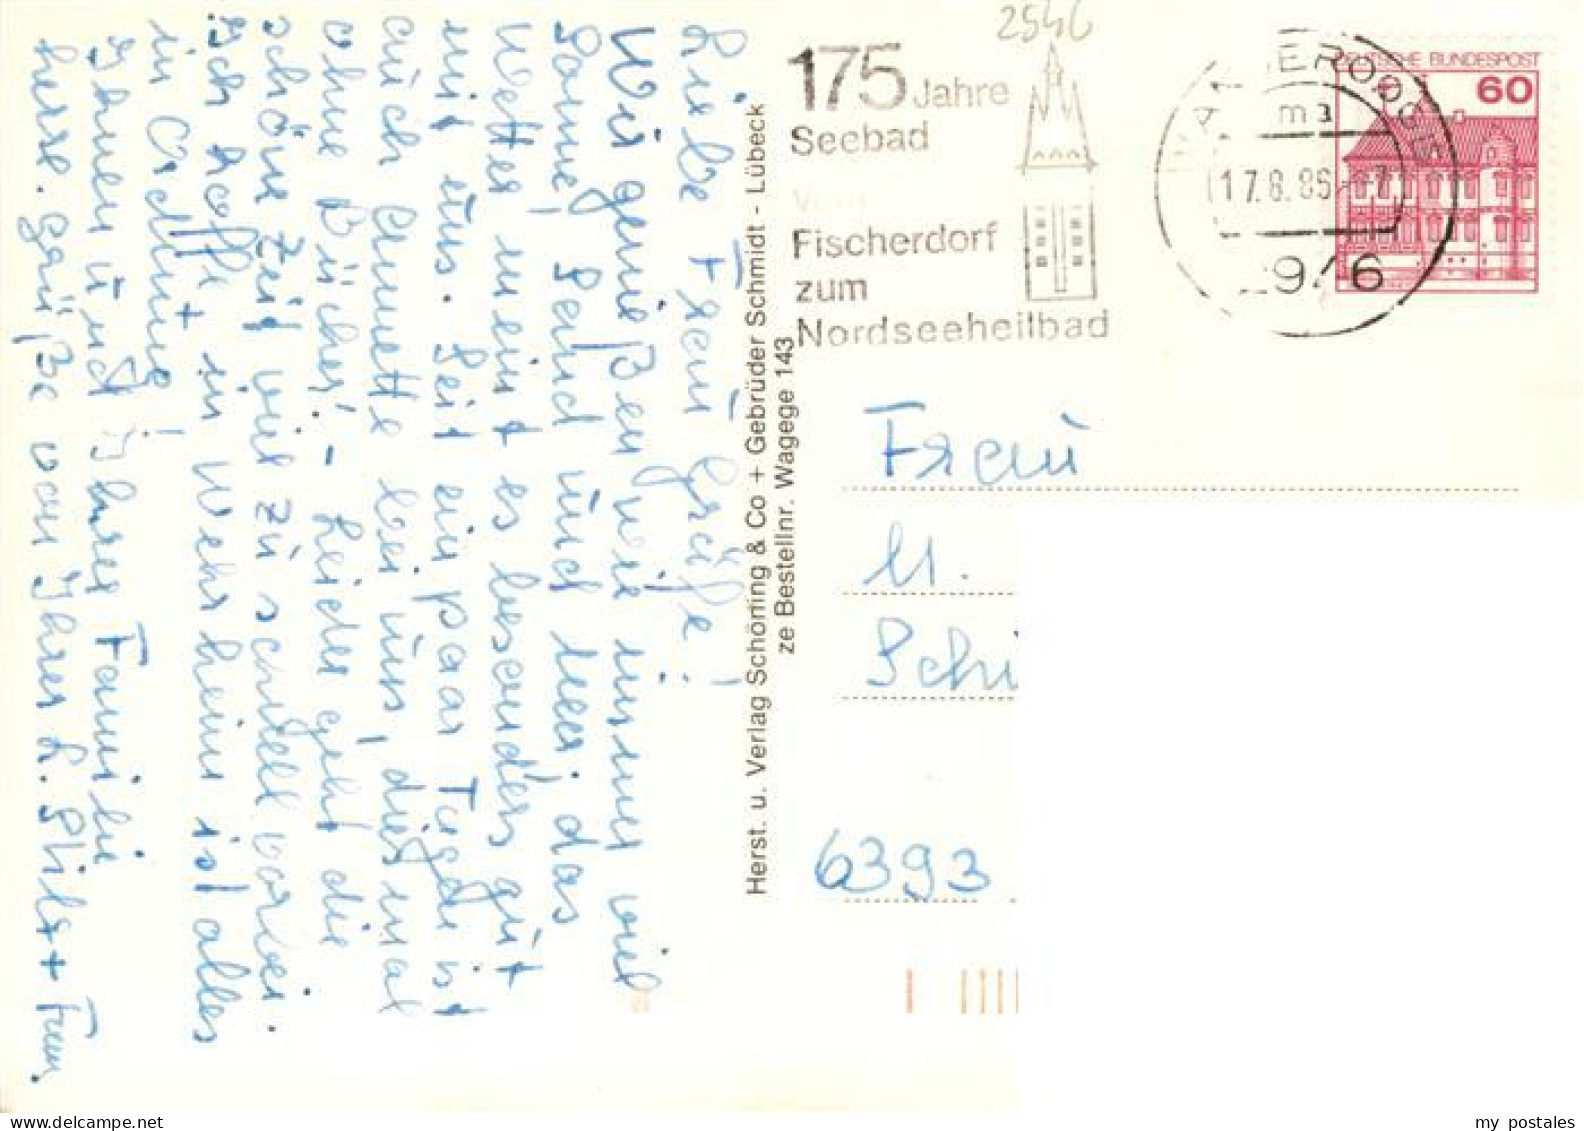 Liebe Frau Größe!
Wir genießen wie immer viel
Sonne, Sand und Meer. das
Wetter meint es besonders gut
mit uns. Seit ein paar Tagen ist
auch Annette bei uns, diesmal
ohne Bücher! - Leider geht die
schöne Zeit viel zu schnell vorbei.
Ich hoffe, in Wehrheim ist alles
in Ordnung!
Ihnen und Ihrer Familie
herzl. Grüße von Ihrer L. + Fam.
Herst. u. Verlag Schöning & Co + Gebrüder Schmidt - Lübeck
ze Bestellnr. Wagege 143
2546
175 Jahre
Seebad
Vom
Fischerdorf
zum
Nordseeheilbad
DEUTSCHE BUNDESPOST
60
WANGEROOGE
ma
17.8.86
2946
Frau
U.
Schü
6393
my postales